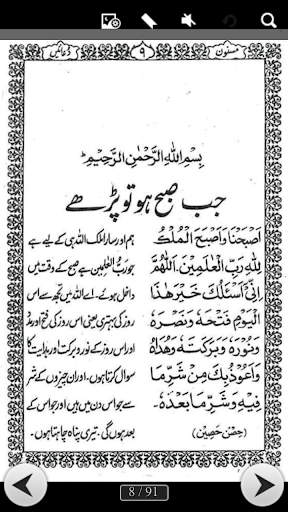 مسنون ۹ دُعائیں
بِسْمِ اللّٰهِ الرَّحْمٰنِ الرَّحِيْمِ
جب صبح ہو تو پڑھے
اَصْبَحْنَا وَاَصْبَحَ الْمُلْكُ
لِلّٰهِ رَبِّ الْعٰلَمِيْنَ. اَللّٰهُمَّ
اِنِّيْ اَسْئَلُكَ خَيْرَ هٰذَا
الْيَوْمِ فَتْحَهٗ وَنَصْرَهٗ
وَنُوْرَهٗ وَبَرَكَتَهٗ وَهُدَاهُ
وَاَعُوْذُبِكَ مِنْ شَرِّ مَا
فِيْهِ وَشَرِّ مَا بَعْدَهٗ.
(حصن حصین)
ہم اور سارا ملک اللہ ہی کے لیے ہے
جو ربّ العٰلمین ہے صبح کے وقت میں
داخل ہوئے۔ اے اللہ میں تجھ سے اس
روز کی بہتری یعنی اس روز کی فتح اور مدد
اور اس روز کے نور و برکت اور ہدایت کا
سوال کرتا ہوں۔ اور ان چیزوں کے شر
سے جو اس دن میں ہیں اور جو اس کے
بعد ہوں گی۔ تیری پناہ چاہتا ہوں۔
8 / 91